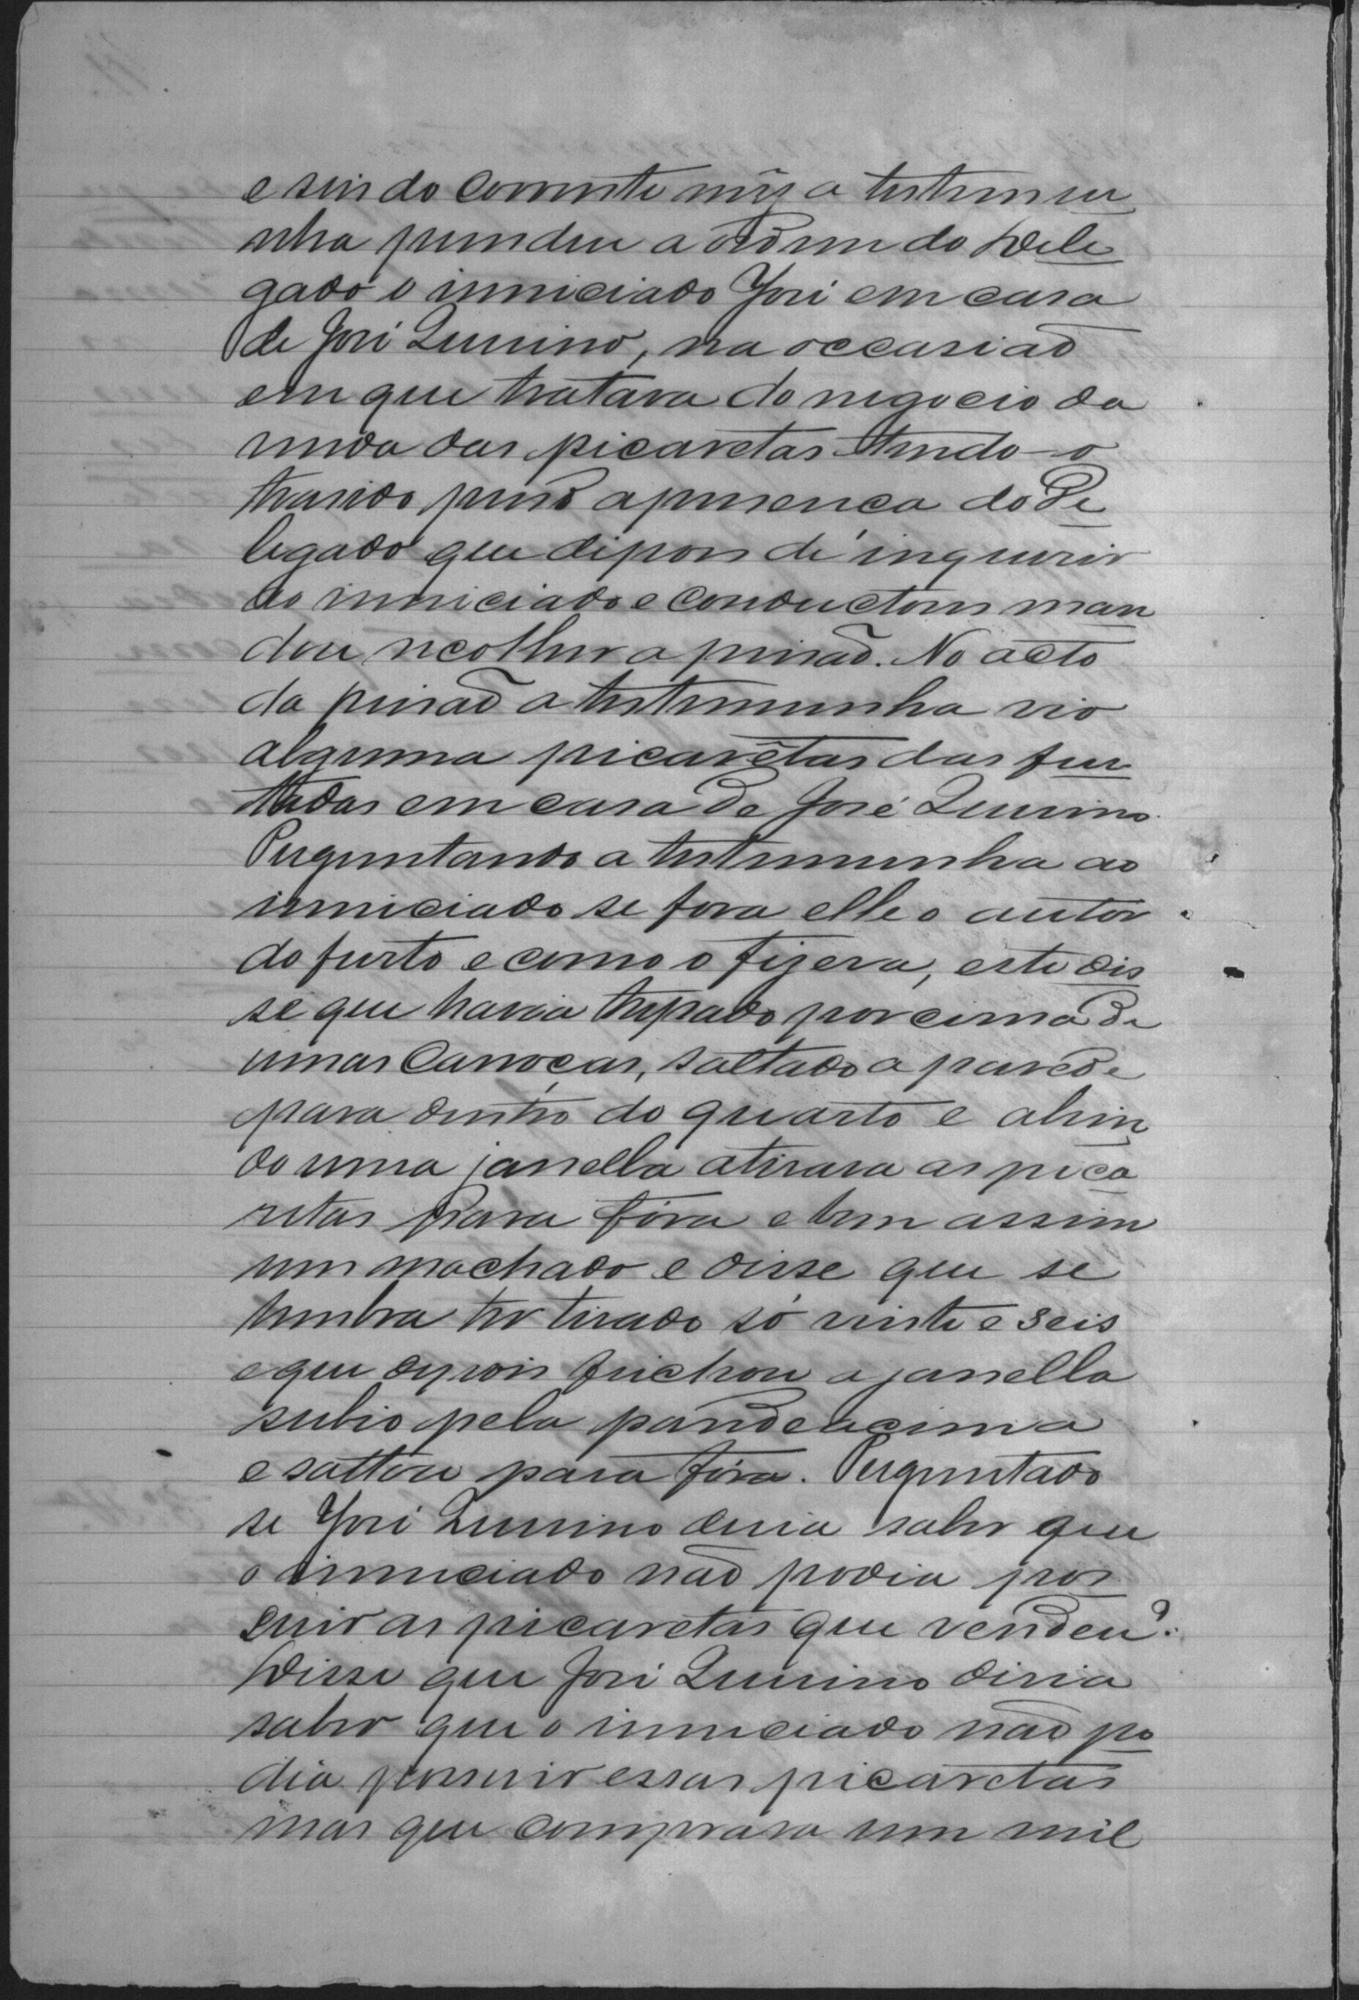 e seis do corrente mêz a testemu
nha prendeu a ordem do Dele
gado o inniciado José em casa
de José Quirino, na occasião
em que tratava do negocio da
venda das picaretas tendo-o
trasido preso a presença do De
legado que depois de inquerir
ao inniciado e conductores man
dou recolher a prisão. No acto
da prisão a testemunha vio
alguma picaretas das fur
tadas em casa de José Quirino.
Perguntando a testemunha ao
inniciado se fora elle o autor
do furto e como o fizera, este dis
se que havia trepado por cima de
umas carroças, saltado a parede
para dentro do quarto e abrin
do uma janella atirara as pica
retas para fóra e bem assim
um machado e disse que se
lembra ter tirado só vinte e seis
e que depois feichou a janella
subio pela parede acima
e saltou para fóra. Perguntado
se José Quirino devia saber que
o inniciado não podia pos
suir as picaretas que vendeu?
Disse que José Quirino devia
saber que o inniciado não po
dia possuir essas picaretas
mas que comprara um mil